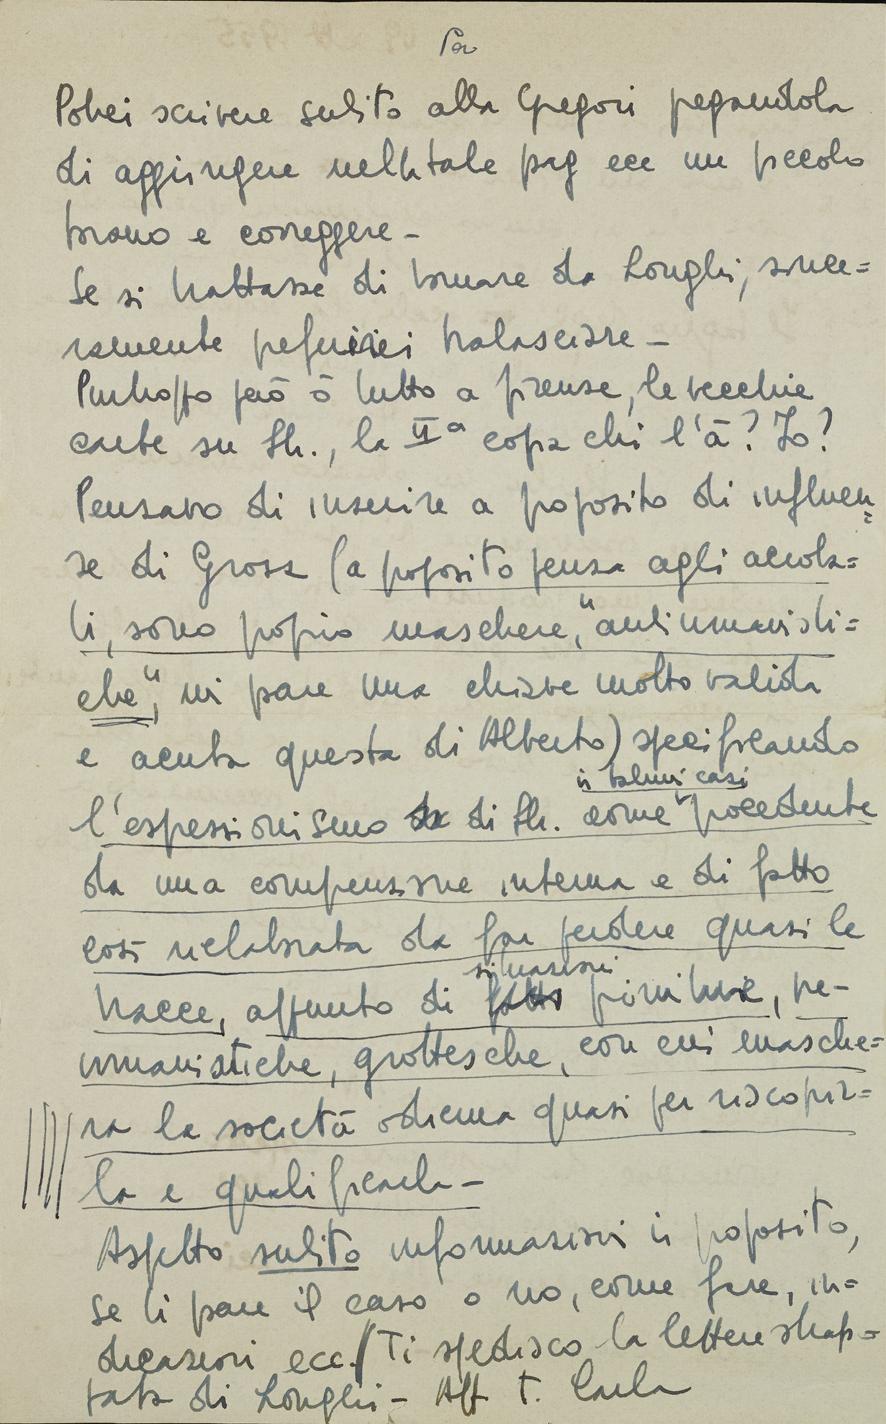 Potrei scrivere subito alla Gregori pregandola
di aggiungere nella tale pag ecc un piccolo
brano e correggere -
Se si trattasse di tornare da Longhi, since=
ramente preferirei tralasciare -
Purtroppo però ò tutto a firenze, le vecchie
carte su Sh., la IIª copia chi l'à? Io?
Pensavo di inserire a proposito di influen=
ze di Grosz (a proposito pensa agli accola=
ti, sono proprio maschere, "antiumanisti=
che", mi pare una chiave molto valida
e acuta questa di Alberto) specificando
l'espressionismo di Sh. come in taluni casi procedente
da una comprensione interna e di fatto
così rielaborata da far perdere quasi le
tracce, appunto di situazioni primitive, pre-
umanistiche, grottesche, con cui masche=
ra la società odierna quasi per riscoprir=
la e qualificarla -
Aspetto subito informazioni in proposito,
se ti pare il caso o no, come fare, in=
dicazioni ecc./ Ti spedisco la lettera strap=
pata di Longhi - Aff T. Carla